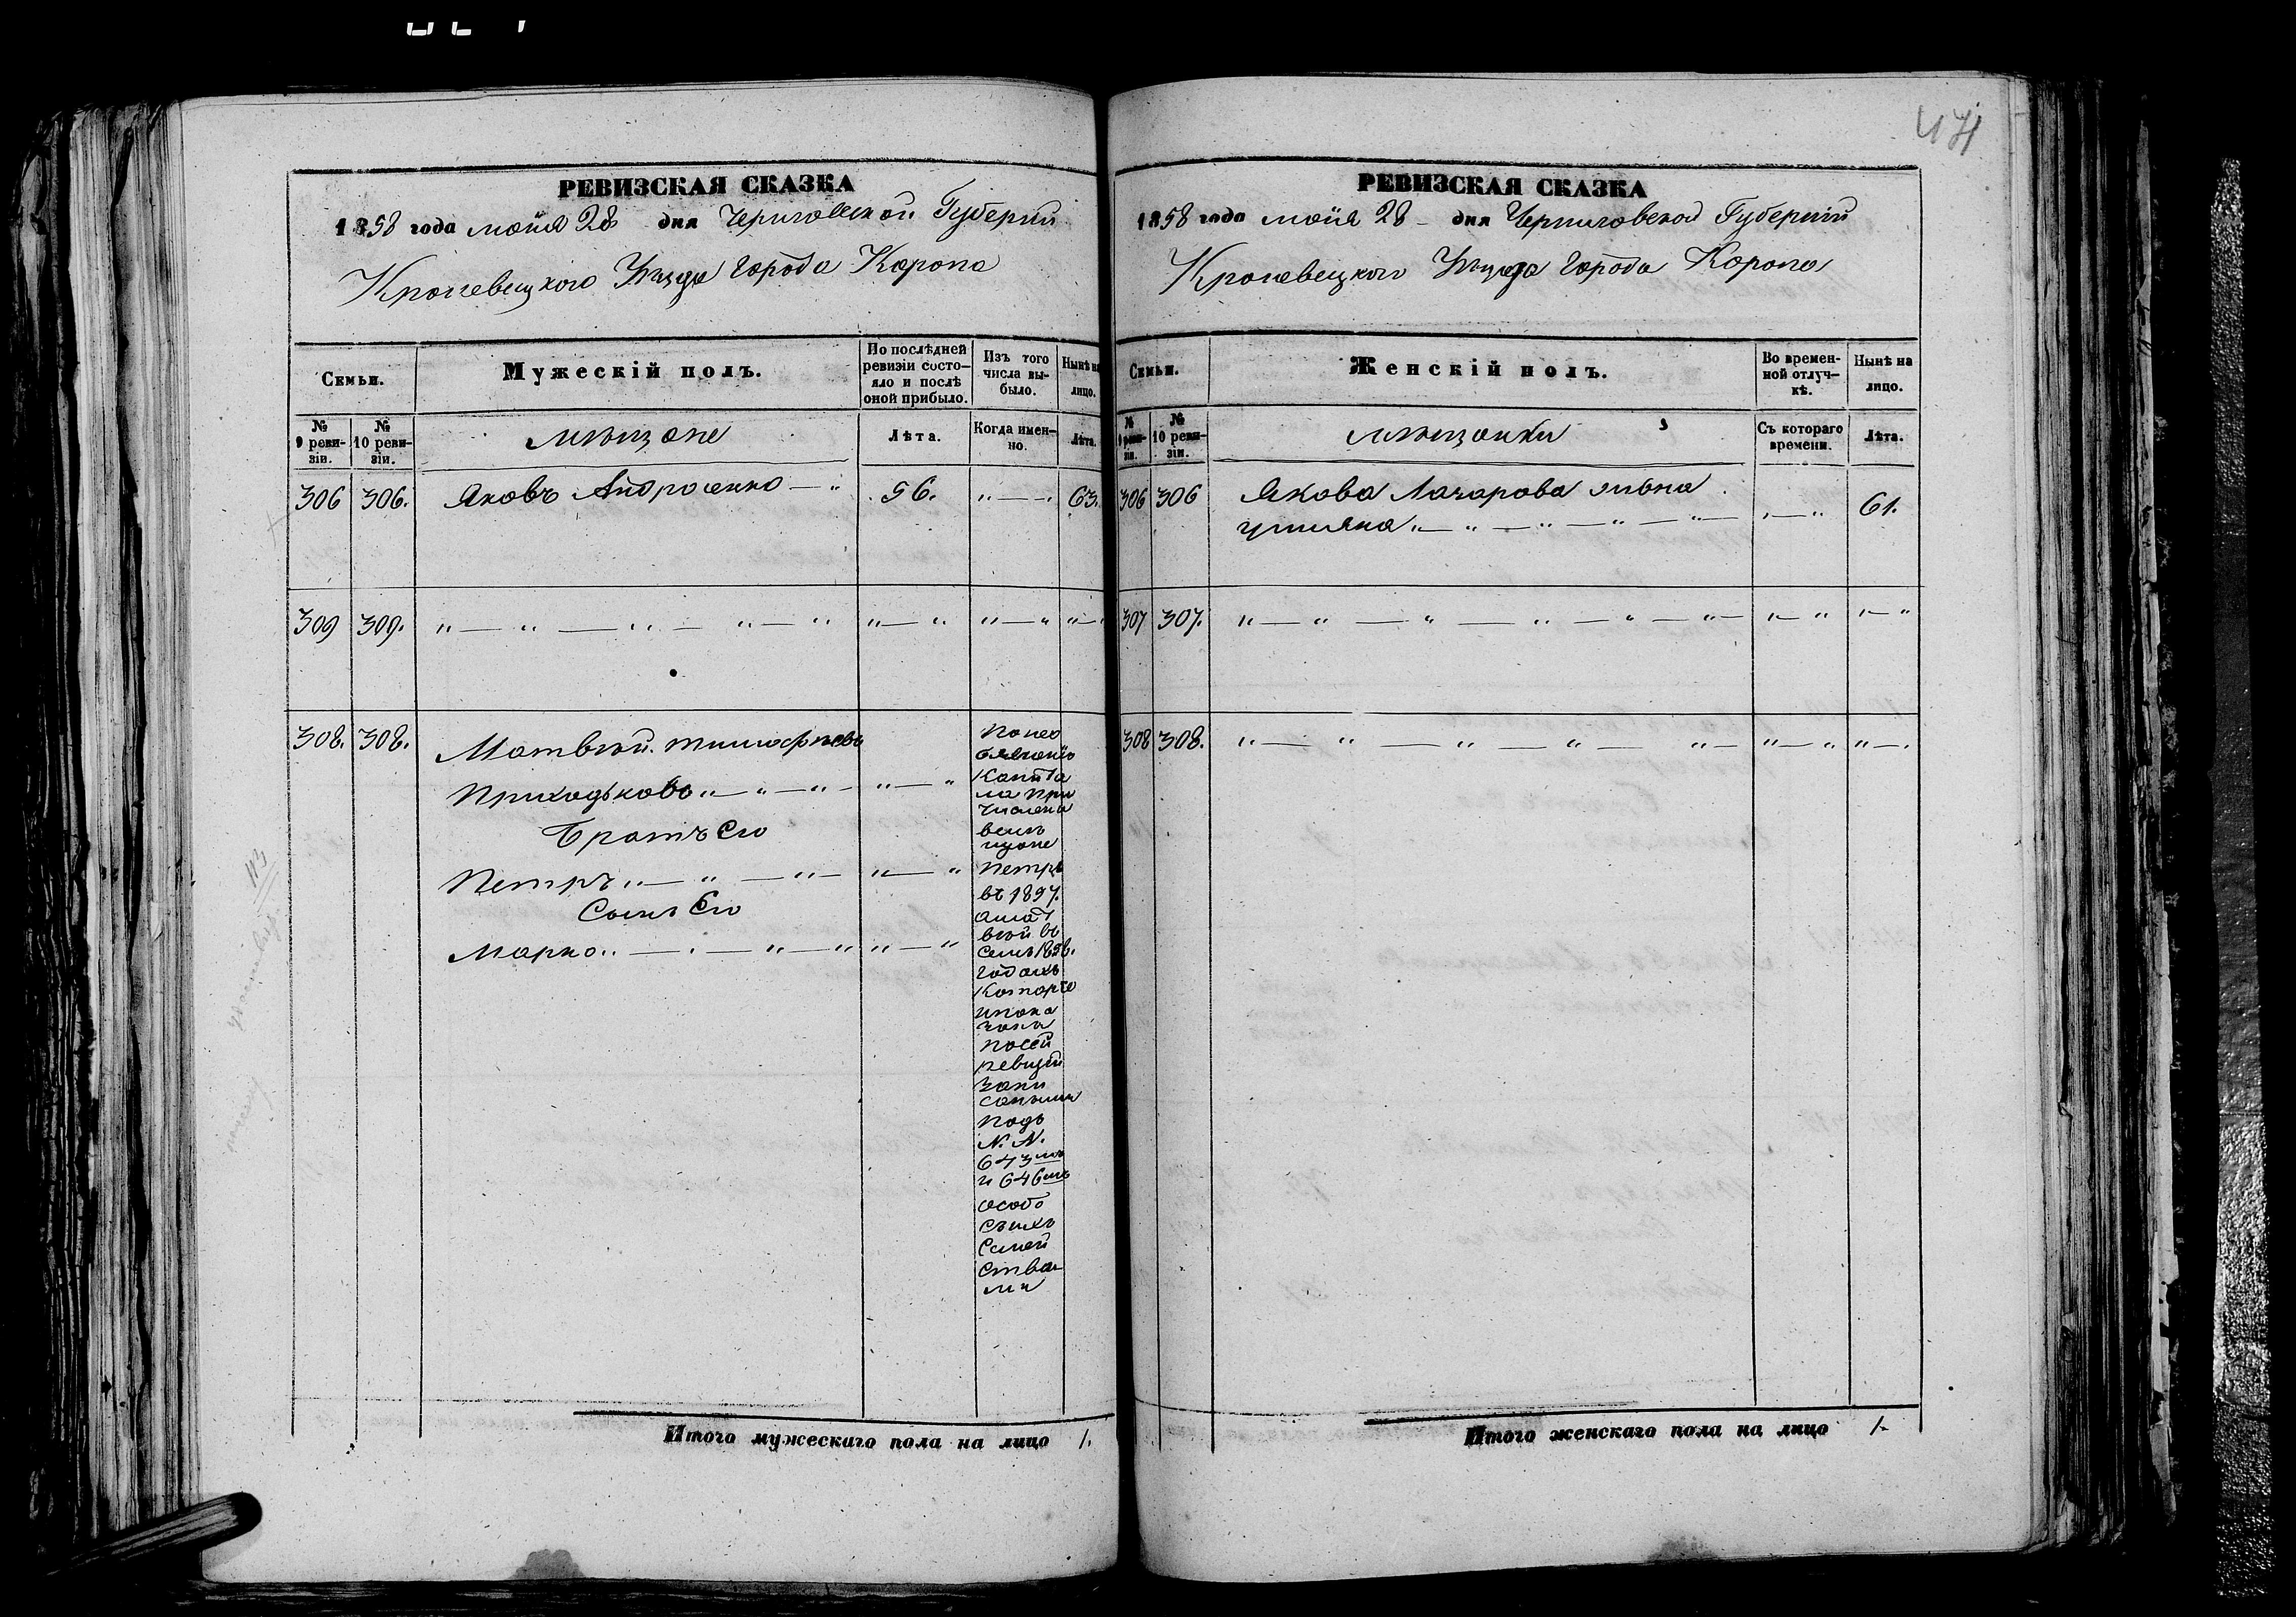 471
РЕВИЗСКАЯ СКАЗКА
1858 года мaйя 28 дня Черниговской Губернии
Кролевецкого Уѣзда Города Коропа
Семьи.
Мужескій полъ.
По послѣдней ревизіи состояло и послѣ оной прибыло.
Изъ того числа выбыло.
Нынѣ на лицо.
№ 9 ревизіи.
№ 10 ревизіи.
мѣщане
Лѣта.
Когда именно.
Лѣта.
306 306. Яковъ Андросенко — „ 56. „ — „ 63.
309 309. „ — „ — „ — „ — „ „ — „ „ — „ „ — „
308. 308. Матвѣй Тимофѣевъ
Приходьково „ — „ — „ — „ — „
Братъ Его
Петръ „ — „ — „ — „ — „
Сынъ Его
Марко „ — „ — „ — „ „ — „
по нео
бявлению
Капита
ла при
числены
вмѣ
щане
Петръ
въ 1857.
а Мат
вѣй въ
семъ 1858.
годахъ
которые
и пока
заны
по сей
ревизии
запи
саными
подъ
N. N.
643мъ
и 646мъ
особо
съ ихъ
семей
ства
ми
Итого мужескаго пола на лицо 1.
РЕВИЗСКАЯ СКАЗКА
1858 года мaйя 28 – дня Черниговской Губернии
Кролевецкого Уѣзда Города Коропа
Семьи.
Женскій полъ.
Во временной отлучкѣ.
Нынѣ на лицо.
№ 9 ревизіи.
№ 10 ревизіи.
мѣщанки
Съ котораго времени.
Лѣта.
306 306 Якова Лазарова жена
Ульяна „ — „ — „ — „ — „ — „ — „ 61.
307 307. „ — „ — „ — „ — „ — „ — „ — „ „ — „
308 308. „ — „ — „ — „ — „ — „ — „ „ — „
Итого женскаго пола на лицо 1.